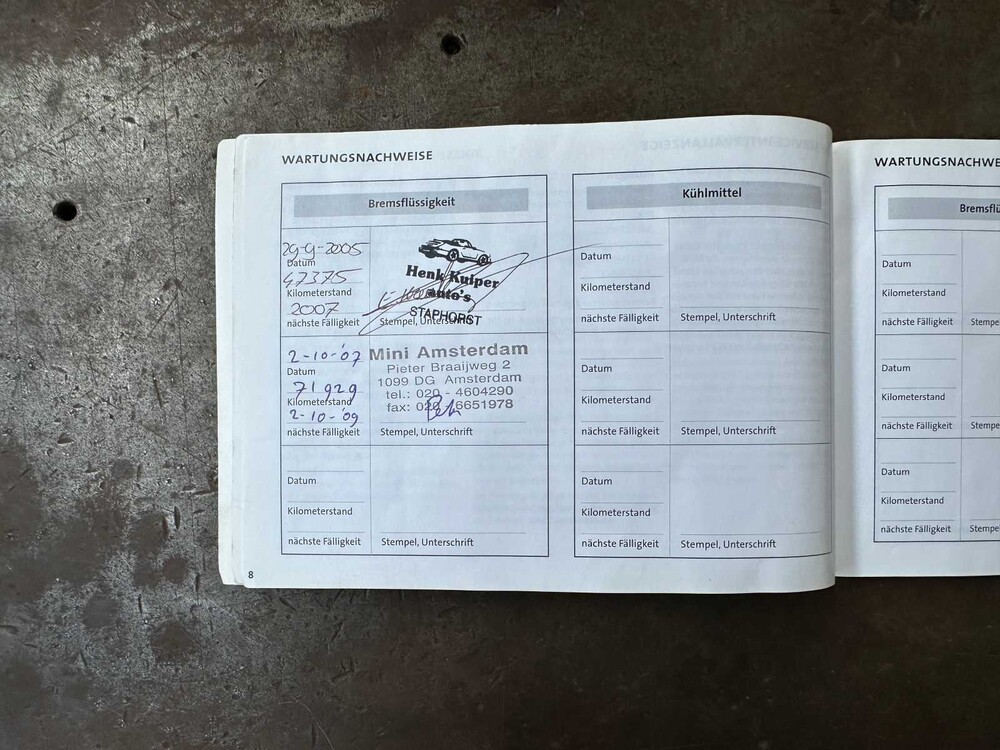 WARTUNGSNACHWEISE
Bremsflüssigkeit
29-9-2005
Datum
47375
Kilometerstand
2007
nächste Fälligkeit
Henk Kuiper
auto's
STAPHORST
Stempel, Unterschrift
2-10-'07
Datum
71929
Kilometerstand
2-10-'09
nächste Fälligkeit
Mini Amsterdam
Pieter Braaijweg 2
1099 DG Amsterdam
tel.: 020 - 4604290
fax: 020 - 6651978
Stempel, Unterschrift
Datum
Kilometerstand
nächste Fälligkeit
Stempel, Unterschrift
8
Kühlmittel
Datum
Kilometerstand
nächste Fälligkeit
Stempel, Unterschrift
Datum
Kilometerstand
nächste Fälligkeit
Stempel, Unterschrift
Datum
Kilometerstand
nächste Fälligkeit
Stempel, Unterschrift
WARTUNGSNACHWE
Bremsflü
Datum
Kilometerstand
nächste Fälligkeit
Stempe
Datum
Kilometerstand
nächste Fälligkeit
Stempe
Datum
Kilometerstand
nächste Fälligkeit
Stempe